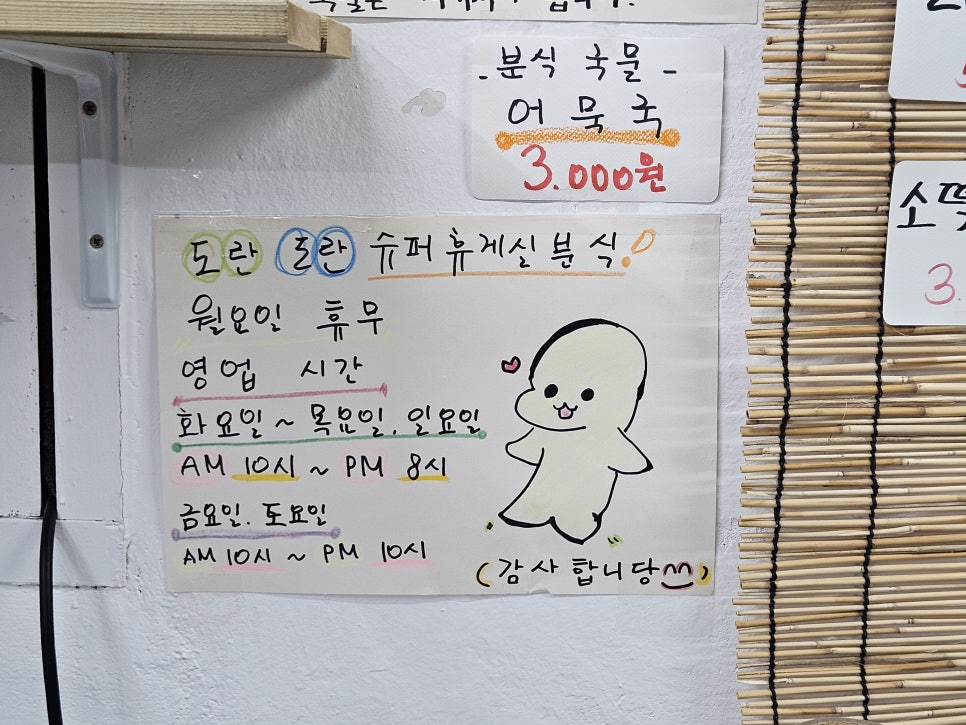 - 분식 국물 -
어묵국
3.000원
도란 도란 슈퍼휴게실분식!
월요일 휴무
영업 시간
화요일 ~ 목요일. 일요일
AM 10시 ~ PM 8시
금요일. 토요일
AM 10시 ~ PM 10시
(감사합니당)
소떡
3.